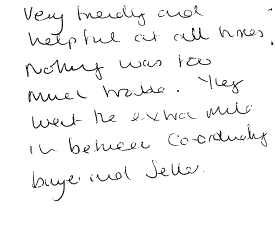 Very friendly and
helpful at all times,
nothing was too
much trouble. They
went the extra mile
in between co-ordinating
buyer and seller.